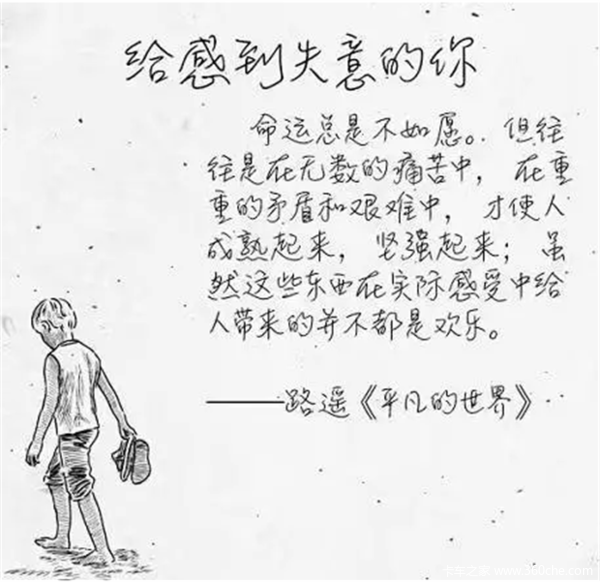 给感到失意的你
命运总是不如愿。但往
往是在无数的痛苦中，在重
重的矛盾和艰难中，才使人
成熟起来，坚强起来；虽
然这些东西在实际感受中给
人带来的并不都是欢乐。
——路遥《平凡的世界》
卡车之家 www.360che.com